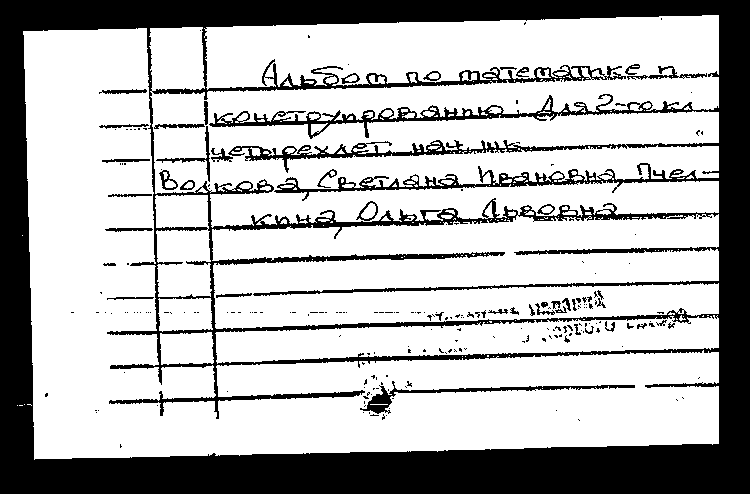 Альбом по математике и
конструированию: Для 2-го кл.
четырехлет. нач. шк.
Волкова, Светлана Ивановна, Пчел-
кина, Ольга Львовна
изданий